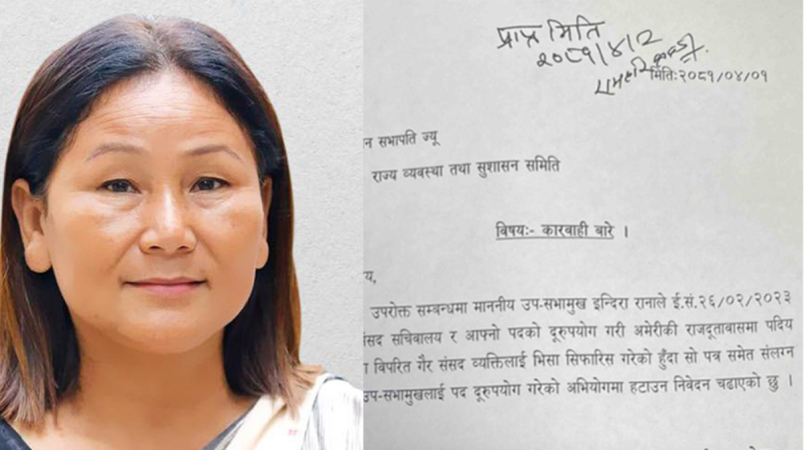 प्राप्त मिति
२०८१/४/२
मिति:२०८१/०४/०१
न सभापति ज्यू
राज्य व्यवस्था तथा सुशासन समिति
विषय:- कारबाही बारे ।
य,
उपरोक्त सम्बन्धमा माननीय उप-सभामुख इन्दिरा रानाले ई.सं.२६/०२/२०२३
ंसद सचिवालय र आफ्नो पदको दूरुपयोग गरी अमेरीकी राजदूतावासमा पदिय
ा विपरित गैर संसद व्यक्तिलाई भिसा सिफारिस गरेको हुँदा सो पत्र समेत संलग्न
उप-सभामुखलाई पद दूरुपयोग गरेको अभियोगमा हटाउन निवेदन चढाएको छु ।